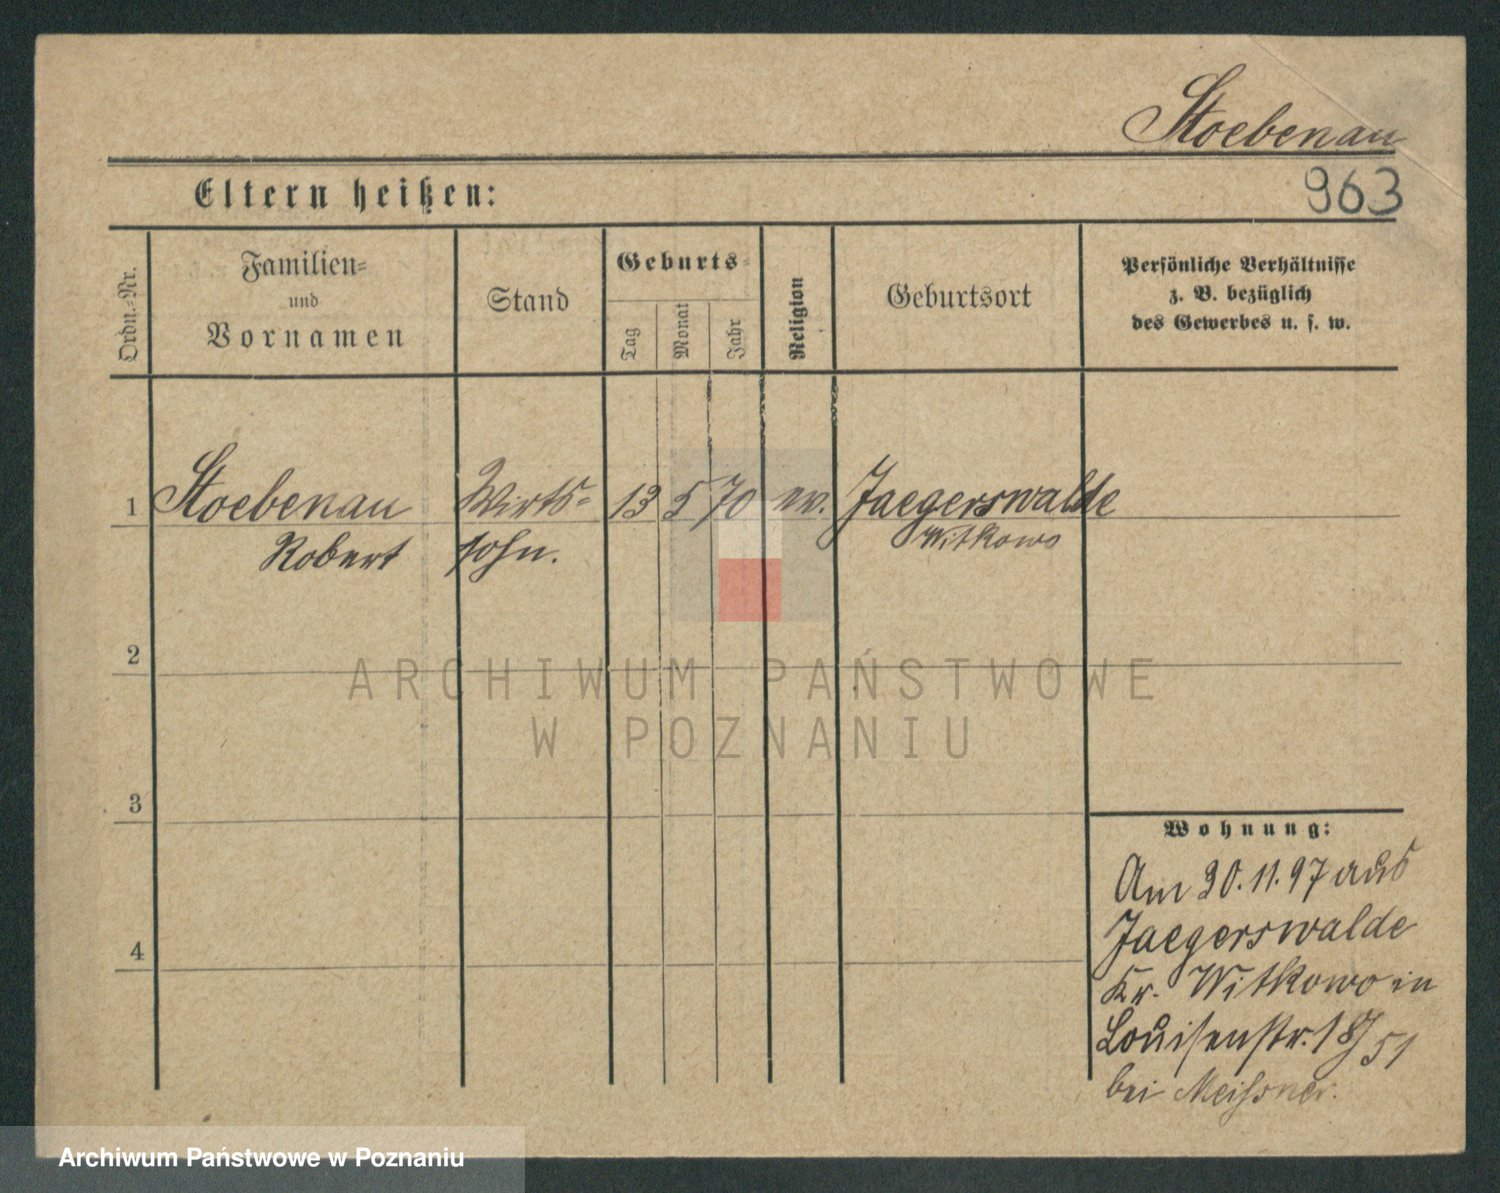 Stoebenau
Eltern heißen:
963
Ordn.-Nr.
Familien-
und
Vornamen
Stand
Geburts-
Tag
Monat
Jahr
Religion
Geburtsort
Persönliche Verhältnisse
z. B. bezüglich
des Gewerbes u. s. w.
1 Stoebenau Wirts- 13 5 70 ev. Jaegerswalde
Robert sohn. Witkowo
2
ARCHIWUM PAŃSTWOWE
W POZNANIU
3
Wohnung:
Am 30.11.97 aus
Jaegerswalde
4
Kr. Witkowo in
Louisenstr. 18/51
bei Meißner.
Archiwum Państwowe w Poznaniu